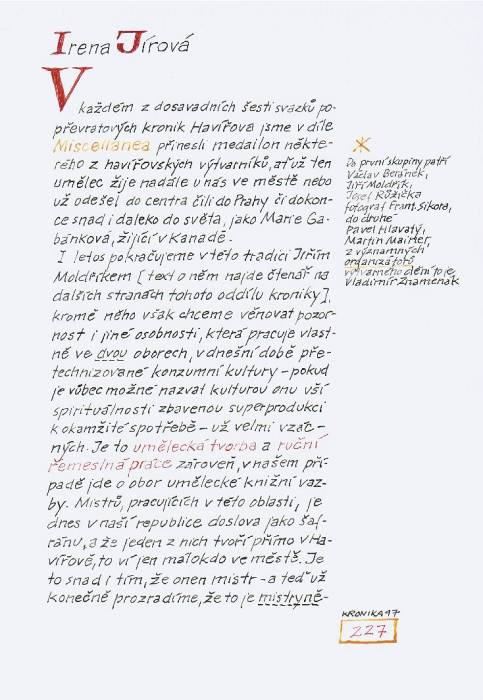 Irena Jírová
V
každém z dosavadních šesti svazků po-
převratových kronik Havířova jsme v díle
Miscellanea přinesli medailon někte-
rého z havířovských výtvarníků, ať už ten
umělec žije nadále u nás ve městě nebo
už odešel do centra čili do Prahy či dokon-
ce snad i daleko do světa, jako Marie Ga-
bánková, žijící v Kanadě.
I letos pokračujeme v této tradici Jiřím
Moldříkem [text o něm najde čtenář na
dalších stranách tohoto oddílu kroniky],
kromě něho však chceme věnovat pozor-
nost i jiné osobnosti, která pracuje vlast-
ně ve dvou oborech, v dnešní době pře-
technizované konzumní kultury – pokud
je vůbec možné nazvat kulturou onu vší
spirituálnosti zbavenou superprodukci
k okamžité spotřebě – už velmi vzác-
ných. Je to umělecká tvorba a ruční
řemeslná práce zároveň, v našem pří-
padě jde o obor umělecké knižní vaz-
by. Mistrů, pracujících v této oblasti, je
dnes v naší republice doslova jako šaf-
ránu, a že jeden z nich tvoří přímo v Ha-
vířově, to ví jen málokdo ve městě. Je
to snad i tím, že onen mistr – a teď už
konečně prozradíme, že to je mistryně –
Do první skupiny patří
Václav Beránek,
Jiří Moldřík,
Josef Růžička
fotograf Frant. Sikora,
do druhé
Pavel Hlavatý,
Martin Mainer,
z významných
organizátorů
výtvarného dění to je
Vladimír Znamenák
KRONIKA 97
227